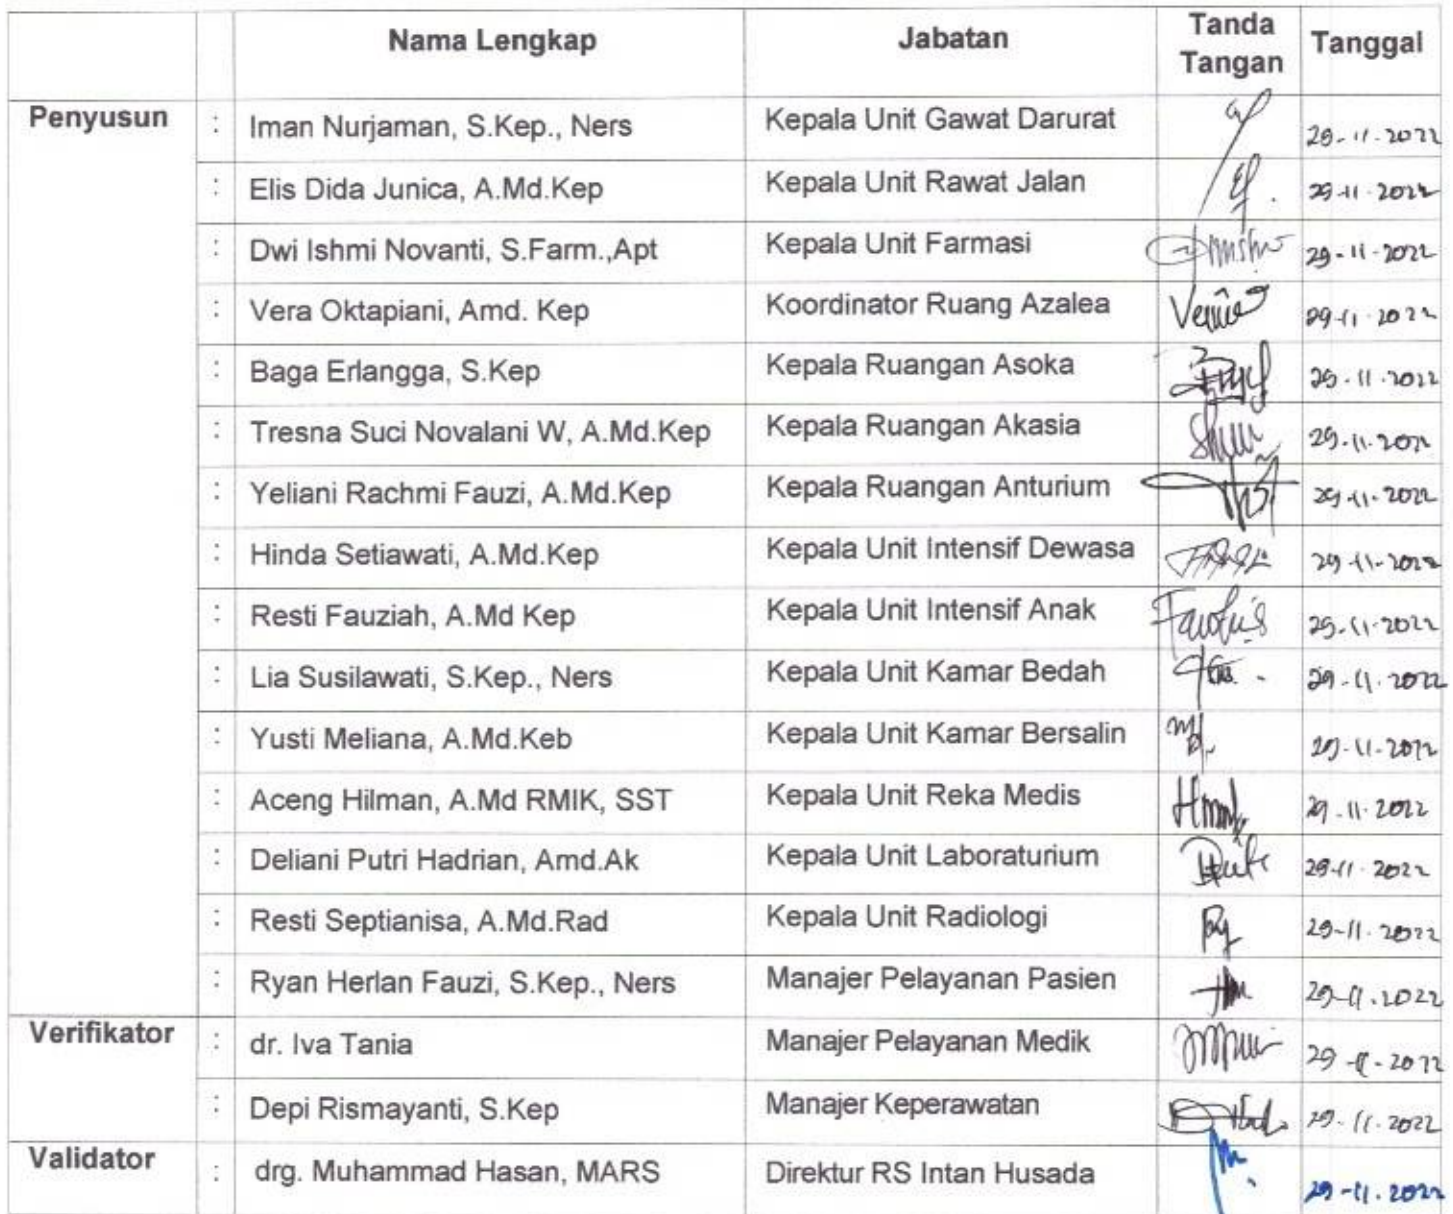 Nama Lengkap Jabatan Tanda Tangan Tanggal
Penyusun : Iman Nurjaman, S.Kep., Ners Kepala Unit Gawat Darurat 29-11-2022
: Elis Dida Junica, A.Md.Kep Kepala Unit Rawat Jalan 29-11-2022
: Dwi Ishmi Novanti, S.Farm.,Apt Kepala Unit Farmasi 29-11-2022
: Vera Oktapiani, Amd. Kep Koordinator Ruang Azalea 29-11-2022
: Baga Erlangga, S.Kep Kepala Ruangan Asoka 29-11-2022
: Tresna Suci Novalani W, A.Md.Kep Kepala Ruangan Akasia 29-11-2022
: Yeliani Rachmi Fauzi, A.Md.Kep Kepala Ruangan Anturium 29-11-2022
: Hinda Setiawati, A.Md.Kep Kepala Unit Intensif Dewasa 29-11-2022
: Resti Fauziah, A.Md Kep Kepala Unit Intensif Anak 29-11-2022
: Lia Susilawati, S.Kep., Ners Kepala Unit Kamar Bedah 29-11-2022
: Yusti Meliana, A.Md.Keb Kepala Unit Kamar Bersalin 29-11-2022
: Aceng Hilman, A.Md RMIK, SST Kepala Unit Reka Medis 29-11-2022
: Deliani Putri Hadrian, Amd.Ak Kepala Unit Laboraturium 29-11-2022
: Resti Septianisa, A.Md.Rad Kepala Unit Radiologi 29-11-2022
: Ryan Herlan Fauzi, S.Kep., Ners Manajer Pelayanan Pasien 29-11-2022
Verifikator : dr. Iva Tania Manajer Pelayanan Medik 29-11-2022
: Depi Rismayanti, S.Kep Manajer Keperawatan 29-11-2022
Validator : drg. Muhammad Hasan, MARS Direktur RS Intan Husada 29-11-2022